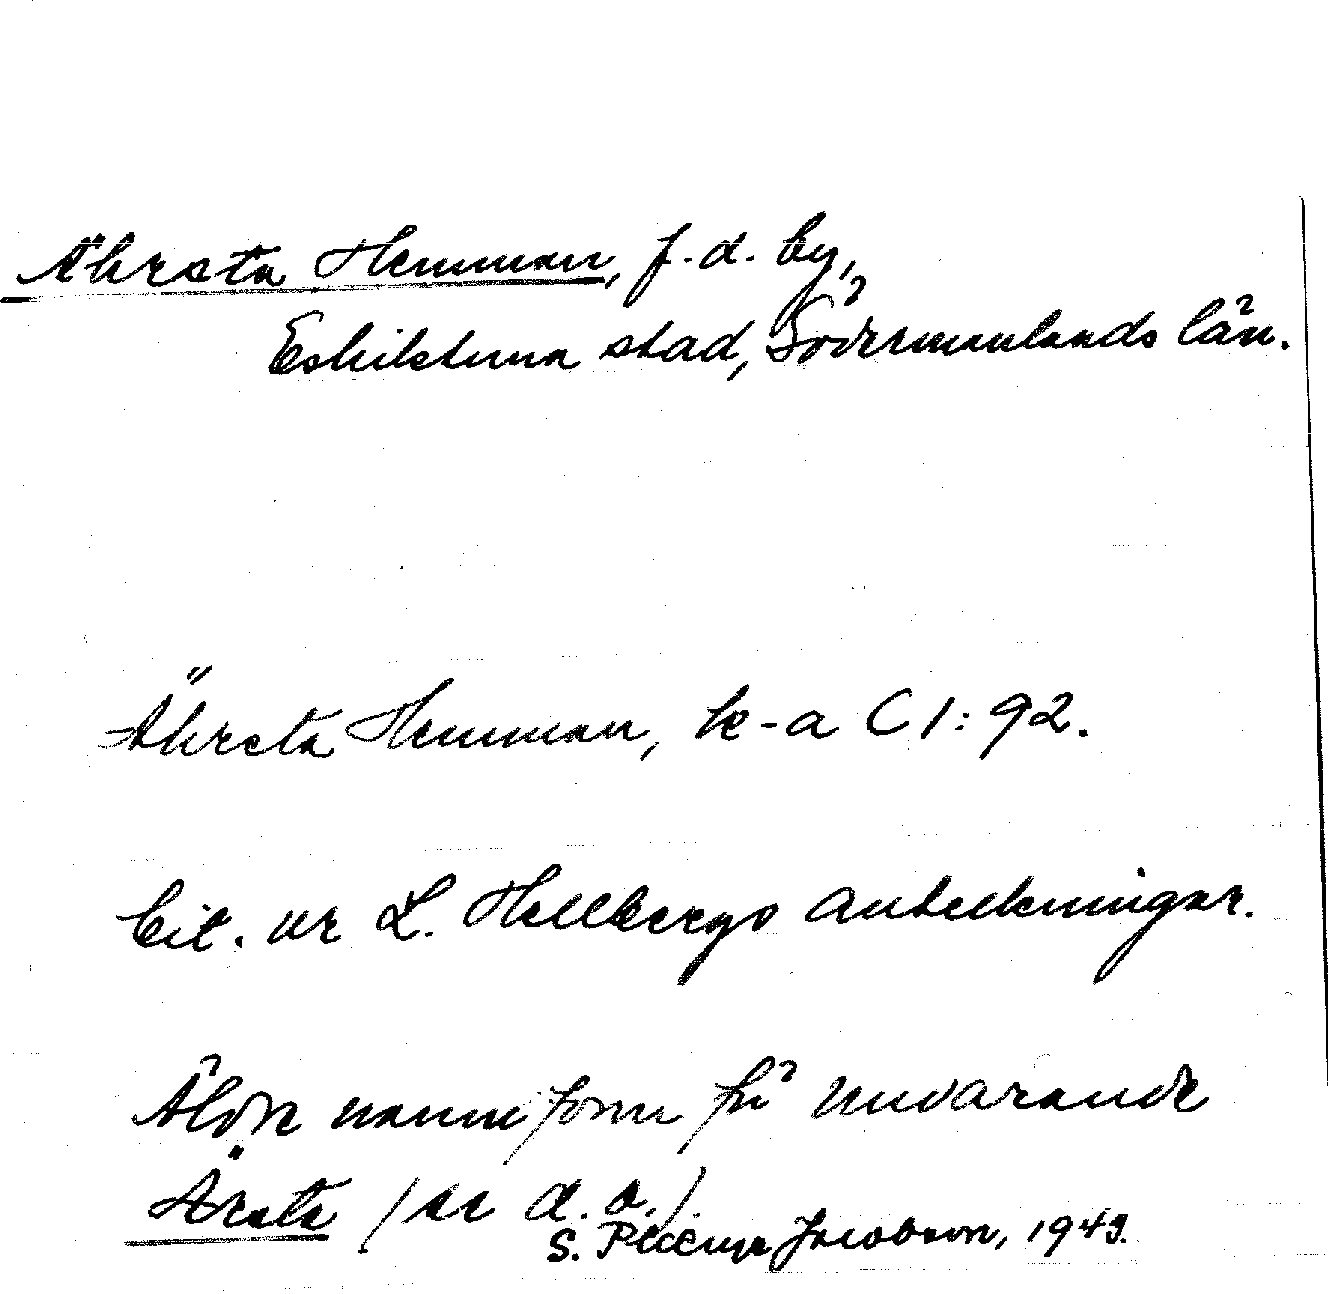 Ährsta Hemman, f.d. by,
Eskilstuna stad, Södermanlands län.
Ährsta Hemman, k-a C I: 92.
Cit. ur L. Hellbergs anteckningar.
Äldre namnform för nuvarande
Ärsta / se d. o. /.
S. Jacobson, 1943.